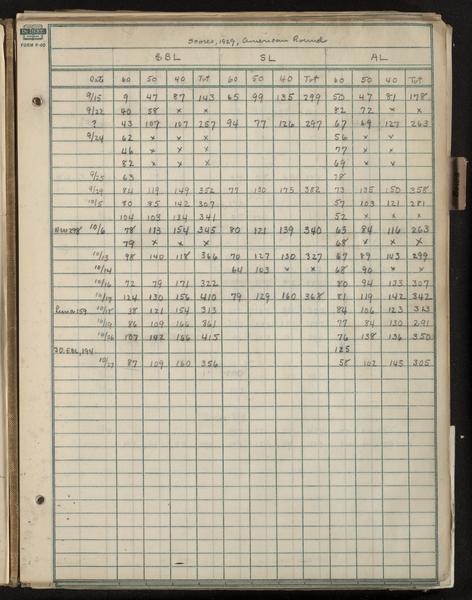 FORM P-40
Scores, 1929, American Round
SBL SL AL
Date 60 50 40 Tot 60 50 40 Tot 60 50 40 Tot
9/15 9 47 87 143 65 99 135 299 50 47 81 178
9/22 40 58 x x 82 72 x x
? 43 107 107 257 94 77 126 297 67 69 127 263
9/24 62 x x x 56 x x
46 x x x 77 x x
82 x x x 69 x x
9/25 63 78
9/29 84 119 149 352 77 130 175 382 73 135 150 358
10/5 80 85 142 307 57 103 121 281
104 103 134 341 52 x x x
10/6 78 113 154 345 80 121 139 340 63 84 116 263
79 x x x 68 x x x
10/13 98 140 118 366 70 127 130 327 67 89 143 299
10/14 64 103 x x 68 90 x x
10/16 72 79 171 322 80 94 133 307
10/17 124 130 156 410 79 129 160 368 81 119 142 342
10/18 38 121 154 313 84 106 123 313
10/19 86 109 166 361 77 84 130 291
10/26 107 142 166 415 76 138 136 350
125
10/27 87 109 160 356 58 102 145 305